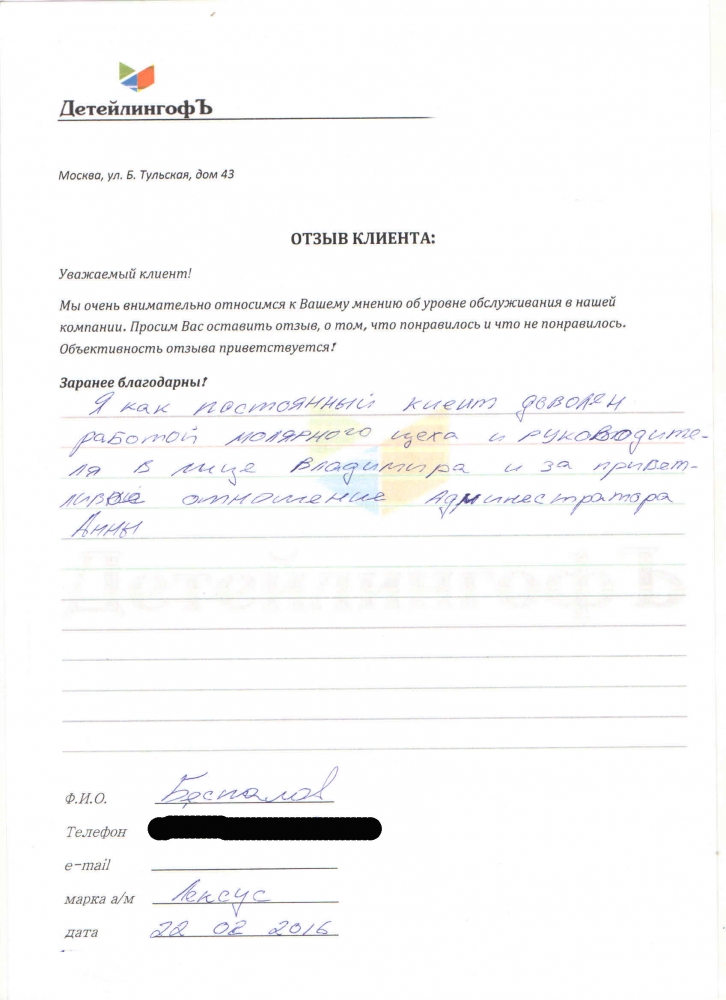 ДетейлингофЪ
Москва, ул. Б. Тульская, дом 43
ОТЗЫВ КЛИЕНТА:
Уважаемый клиент!
Мы очень внимательно относимся к Вашему мнению об уровне обслуживания в нашей
компании. Просим Вас оставить отзыв, о том, что понравилось и что не понравилось.
Объективность отзыва приветствуется!
Заранее благодарны!
Я как постоянный киент доволен
работой молярного цеха и руководите-
ля в лице Владимира и за привет-
ливое отношение Администратора
Анны
Ф.И.О. Беспалов
Телефон
e-mail
марка а/м Лексус
дата 22 02 2016